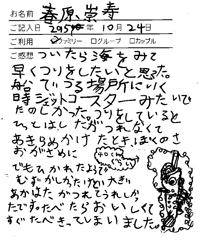 お名前 春原崇寿
ご記入日 2954年10月24日
ご利用 ☑ファミリー □グループ □カップル
ご感想 ついたら海をみて
早くつりをしたいと思った。
船でつる場所にいく
時ジェットコースターみたいで
たのしかった。つりをしていると
ひとはしだがつれなくて
あきらめかけたときぼくのさ
おがざめに
でもひかれたようで
しばかしかったけど大きい
あかはたがつれてうれしか
たです。たべたらおいしくて
すぐたべきってしまいました。